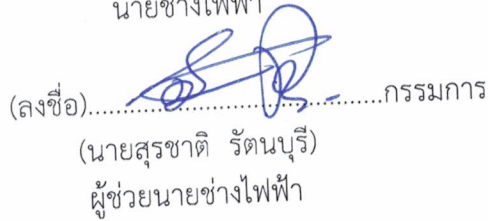 นายช่างไฟฟ้า
(ลงชื่อ)........................................กรรมการ
(นายสุรชาติ รัตนบุรี)
ผู้ช่วยนายช่างไฟฟ้า